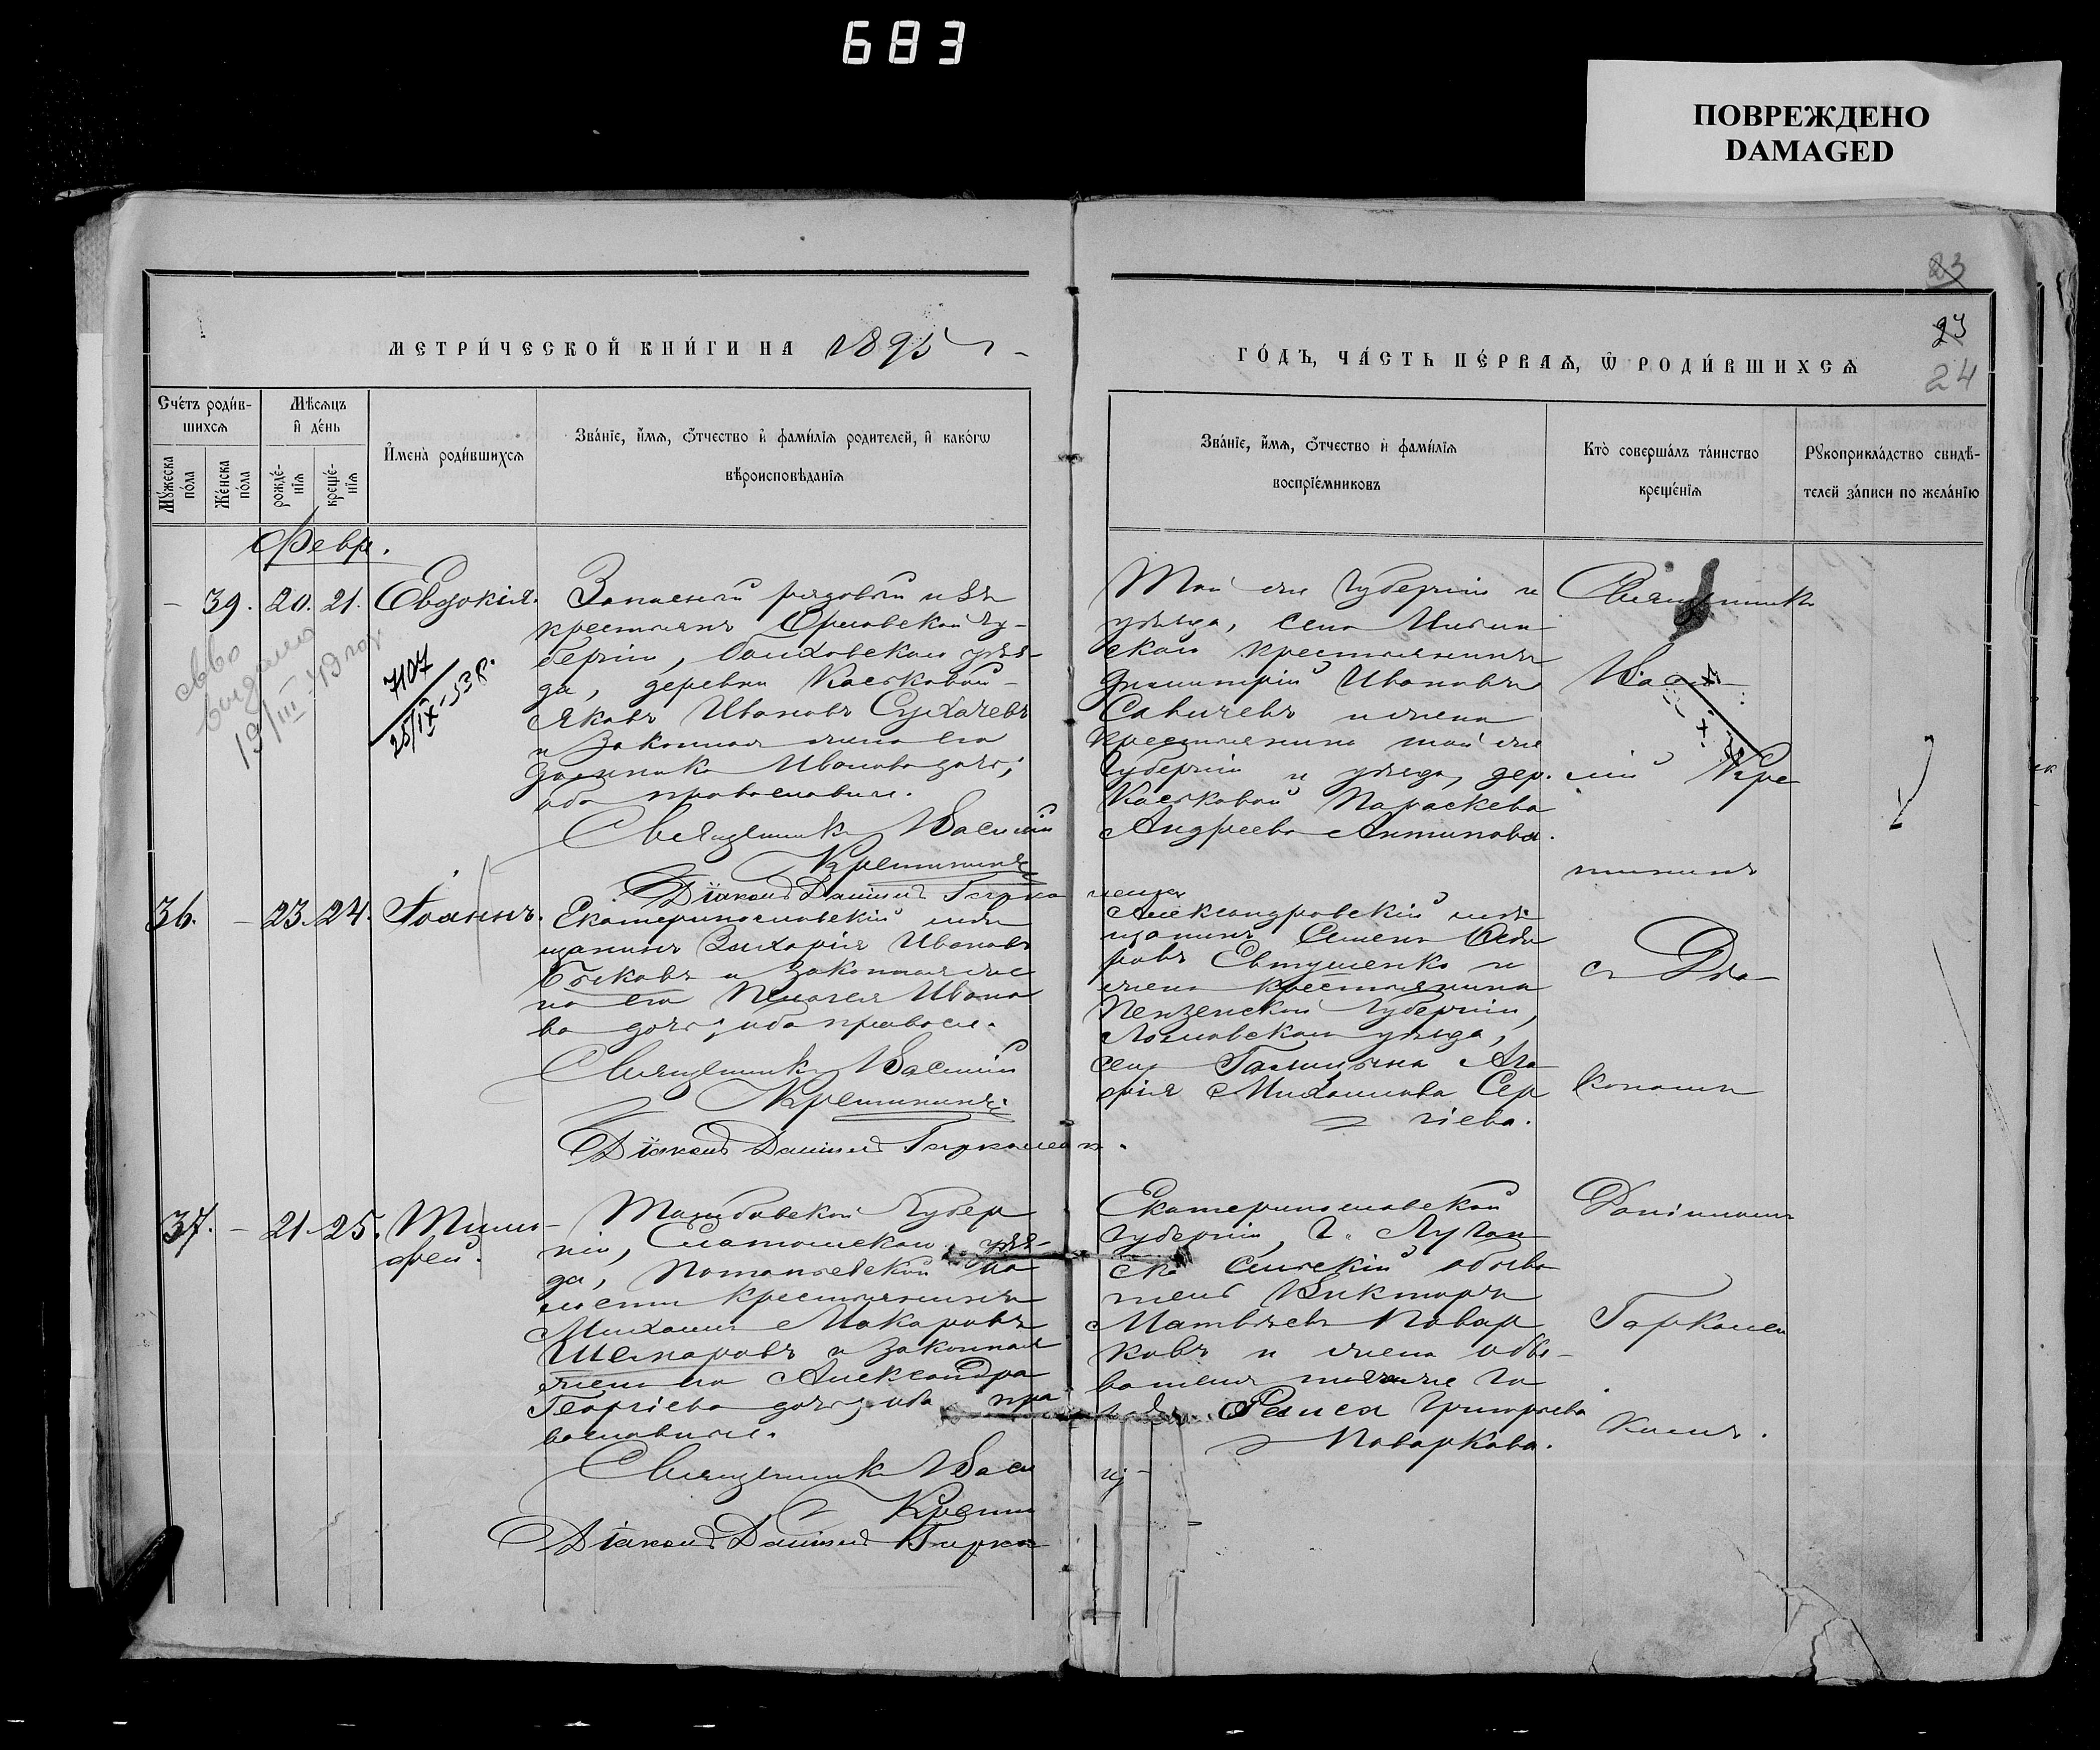 683
ПОВРЕЖДЕНО
DAMAGED
23
23
24
МЕТРИ́ЧЕСКОЙ КНИ́ГИ НА 1895 г.
ГО́ДЪ, ЧА́СТЬ ПЕ́РВАѦ, Ѡ҆ РОДИ́ВШИХСѦ
Сче́тъ роди́в-
шихсѧ
Мѣ́сѧцъ
и҆ де́нь
Мꙋ́жеска
по́ла
Же́нска
по́ла
рожде́-
нїѧ
креще́-
нїѧ
И҆мена̀ роди́вшихсѧ
Зва́нїе, и҆́мѧ, ѻ҆́тчество и҆ фами́лїѧ родителей, и҆ како́гѡ
вѣроисповѣданїѧ
Зва́нїе, и҆́мѧ, ѻ҆́тчество и҆ фами́лїѧ
воспрїе́мниковъ
Кто̀ соверша́лъ та́инство
креще́нїѧ
Рꙋкоприкла́дство свидѣ́-
телей за́писи по жела́нїю
Февр.
– 39. 20. 21. Евдокія.
Запасный рядовой изъ
крестьянъ Орловской гу-
берніи, Болховскаго уѣз-
да, деревни Каськовой
Яковъ Ивановъ Сухачевъ
и законная жена его
Домника Иванова дочь;
оба православные.
Священникъ Василій
Кретининъ
Діаконъ Даніилъ Гарко
менко
св-во
выдано
19/III-43 год
7107
25/IX-53 г.
Той же губерніи и
уѣзда, села
скаго крестьянинъ
Димитрій Ивановъ
Савичевъ и жена
крестьянина той же
губерніи и уѣзда, дер.
Каськовой Параскева
Андреева Антипова.
Священникъ
Васи
лій Кре
тининъ
36. – 23. 24. Іоаннъ.
Екатеринославскій мѣ
щанинъ Захарія Ивановъ
Быковъ и законная же
на его Пелагея Ивано
ва дочь; оба правосл.
Священникъ Василій
Кретининъ
Діаконъ Даніилъ Гаркоменко.
Александровскій мѣ
щанинъ Семенъ Ѳедо
ровъ Евтушенко и
жена крестьянина
Пензенской губерніи,
Ломовскаго уѣзда,
села Голицына Ма
рія Михаилова Сер
гіева.
съ Діа
кономъ
37. – 21. 25. Тимо
фей.
Тамбовской губер
ніи, Елатомскаго уѣз-
да, Потапьевской во
лости крестьянинъ
Михаилъ Макаровъ
Шемаровъ и законная
жена его Александра
Георгіева дочь; оба пра
вославные.
Священникъ Васи
лій
Крети
Діаконъ Даніилъ Гарко
Екатеринославской
губерніи, г. Луган
ска сельскій обыва
тель Викторъ
Матвѣевъ Повар
ковъ и жена обы-
вателя того же го
рода Раиса Григорьева
Поваркова.
Даніиломъ
Гаркомен
комъ.